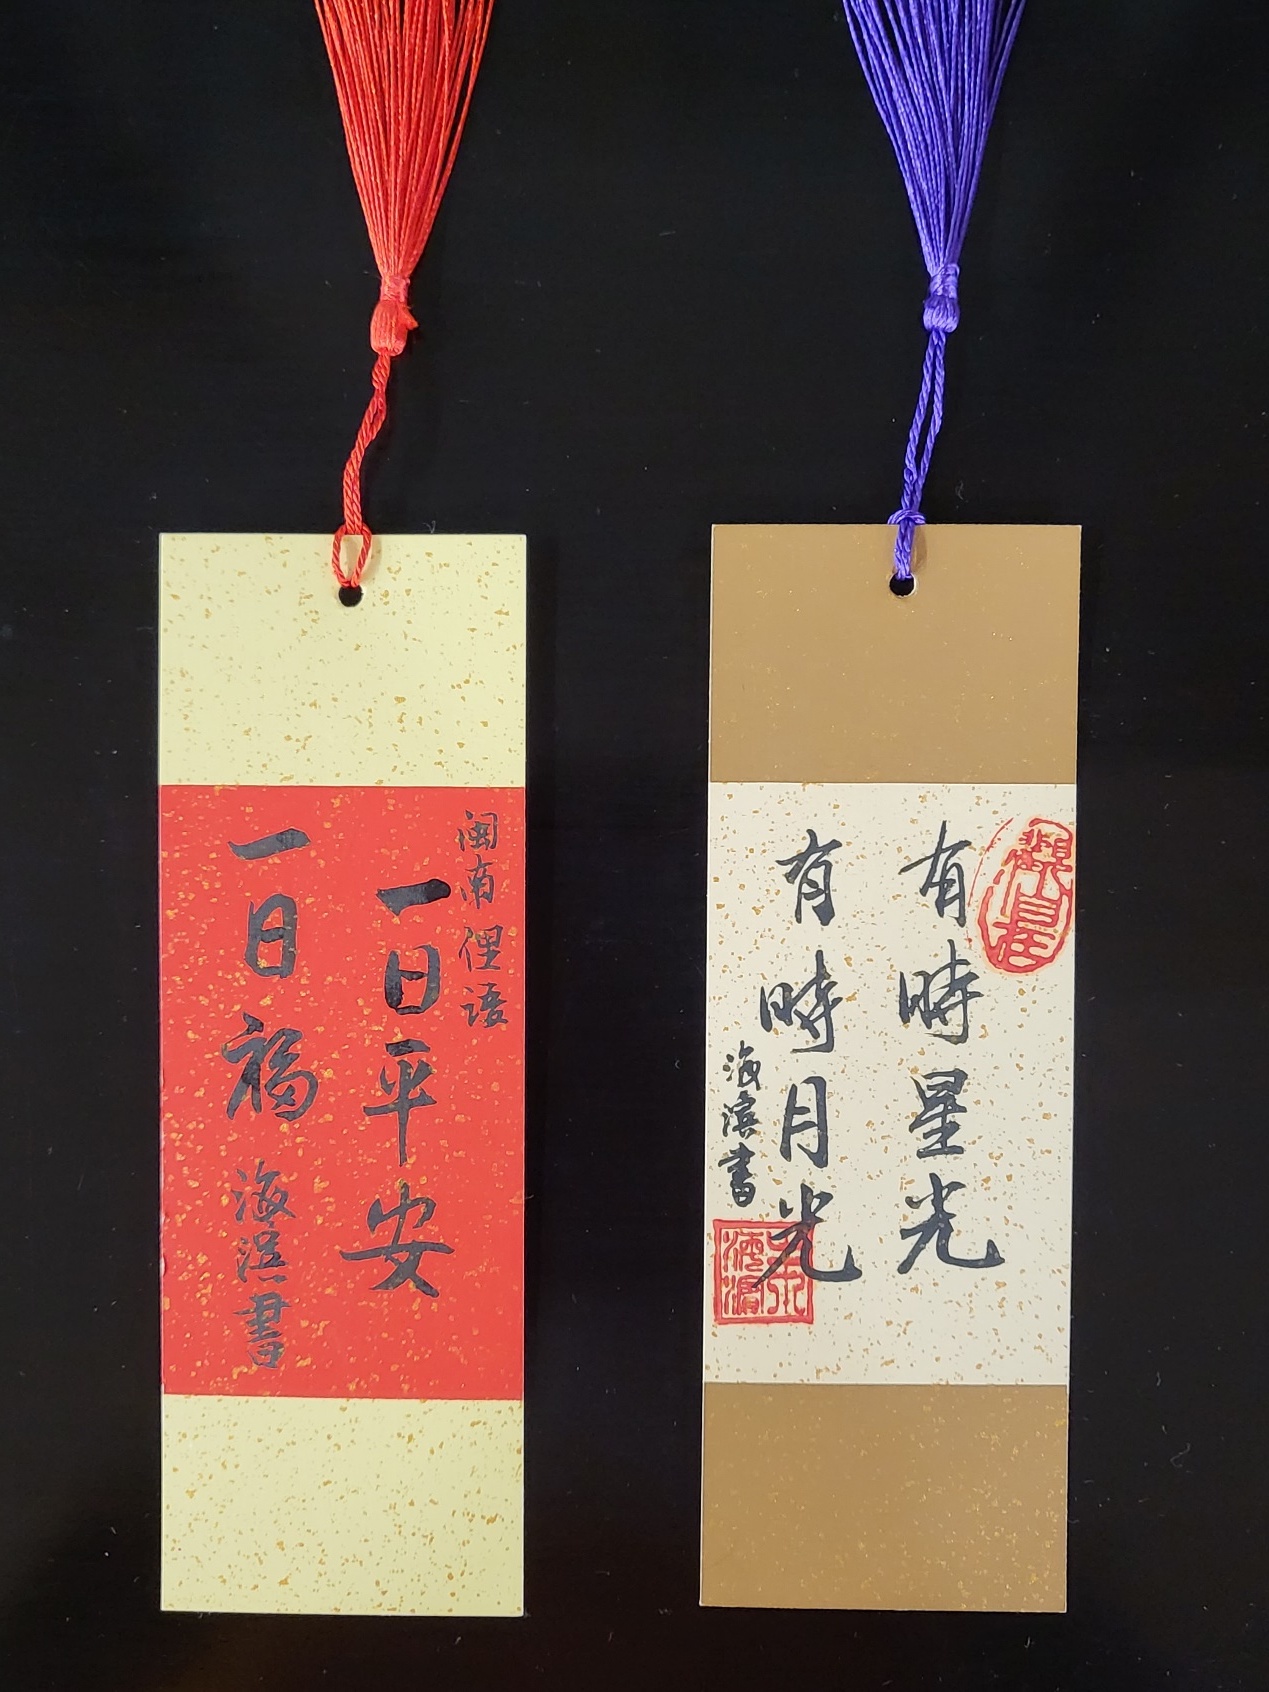 闽南俚语
一日平安
一日福
海滨書
有時星光
有時月光
海滨書